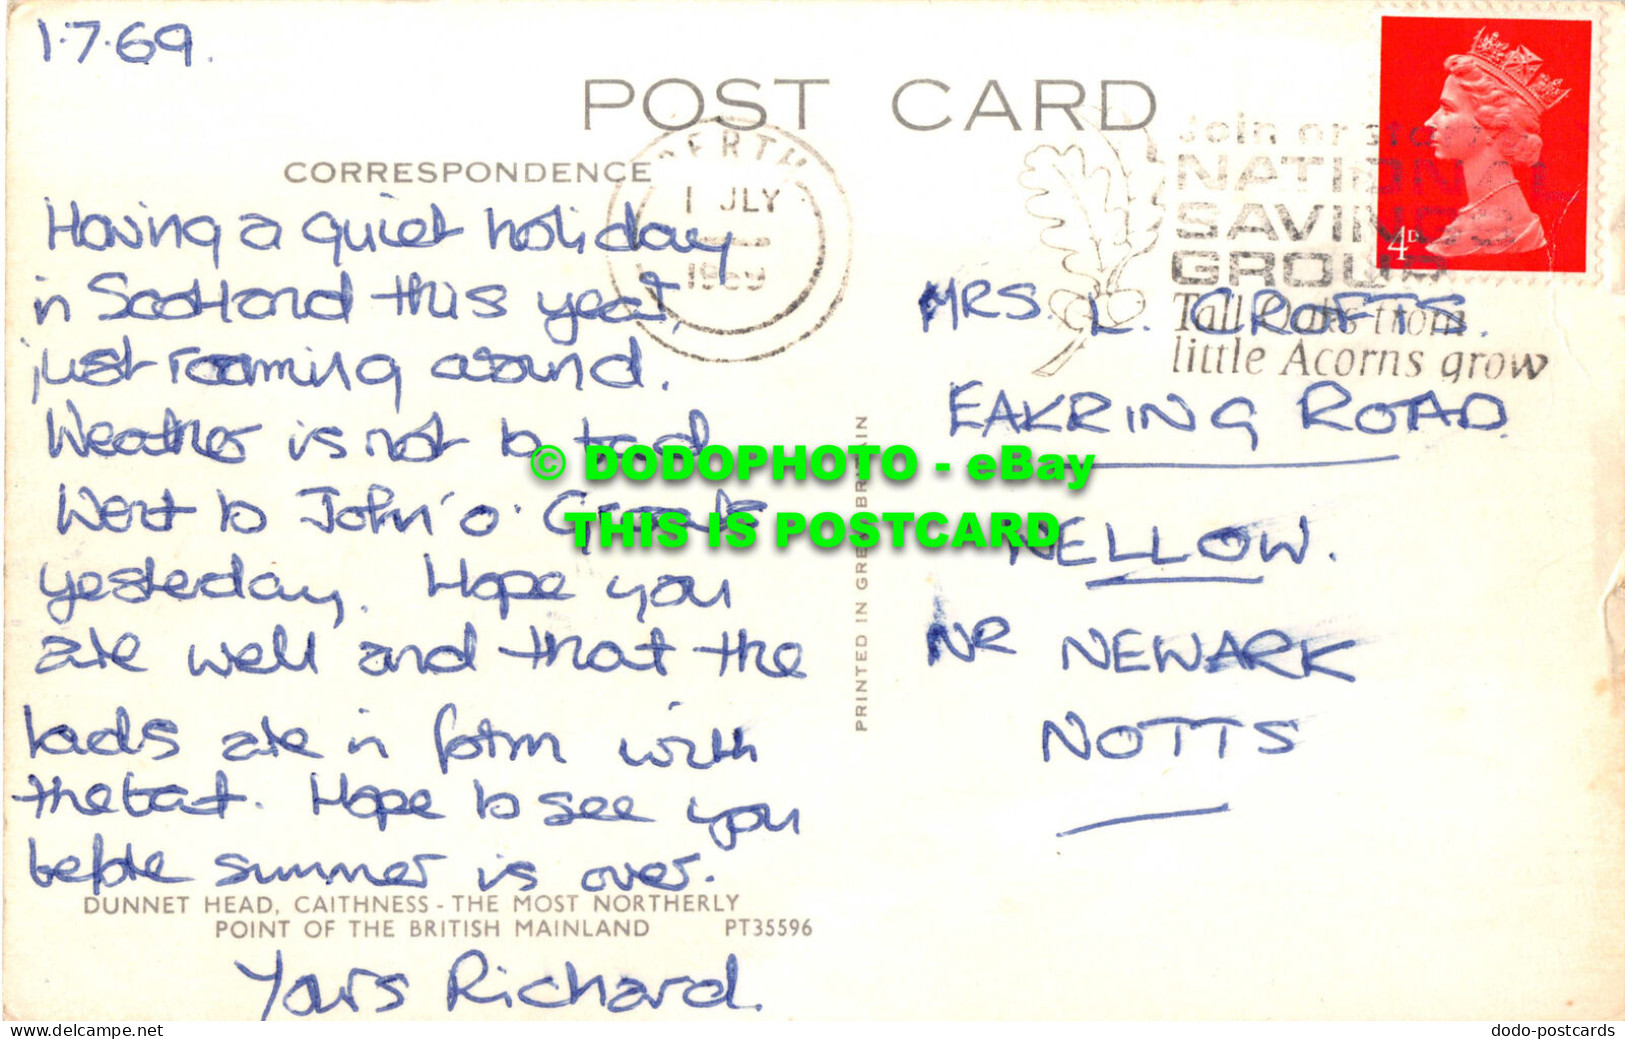 1.7.69.
POST CARD
CORRESPONDENCE
PERTH
1 JLY
1969
Join or start a
NATIONAL
SAVINGS
GROUP
Tall Oaks from
little Acorns grow
4D
Having a quiet holiday
in Scotland this year,
just roaming around.
Weather is not to bad
Went to John 'o' Groats
yesterday. Hope you
are well and that the
lads are in form with
the bat. Hope to see you
before summer is over.
DUNNET HEAD, CAITHNESS - THE MOST NORTHERLY
POINT OF THE BRITISH MAINLAND PT35596
Yours Richard.
PRINTED IN GREAT BRITAIN
MRS. L. CROFTS.
EAKRING ROAD
WELLOW.
NR NEWARK
NOTTS
© DODOPHOTO - eBay
THIS IS POSTCARD
www.delcampe.net
dodo-postcards